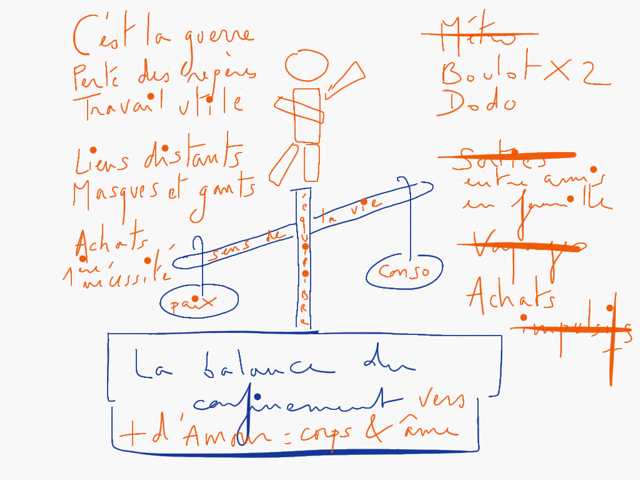 C'est la guerre
Perte des repères
Travail utile
Liens distants
Masques et gants
Achats
1ère nécéssité
Métro
Boulot X 2
Dodo
Sorties
entre amis
en famille
Voyages
Achats
impulsifs
sens de la vie
équilibre
paix
conso
La balance du
confinement vers
+ d'Amour = corps & âme